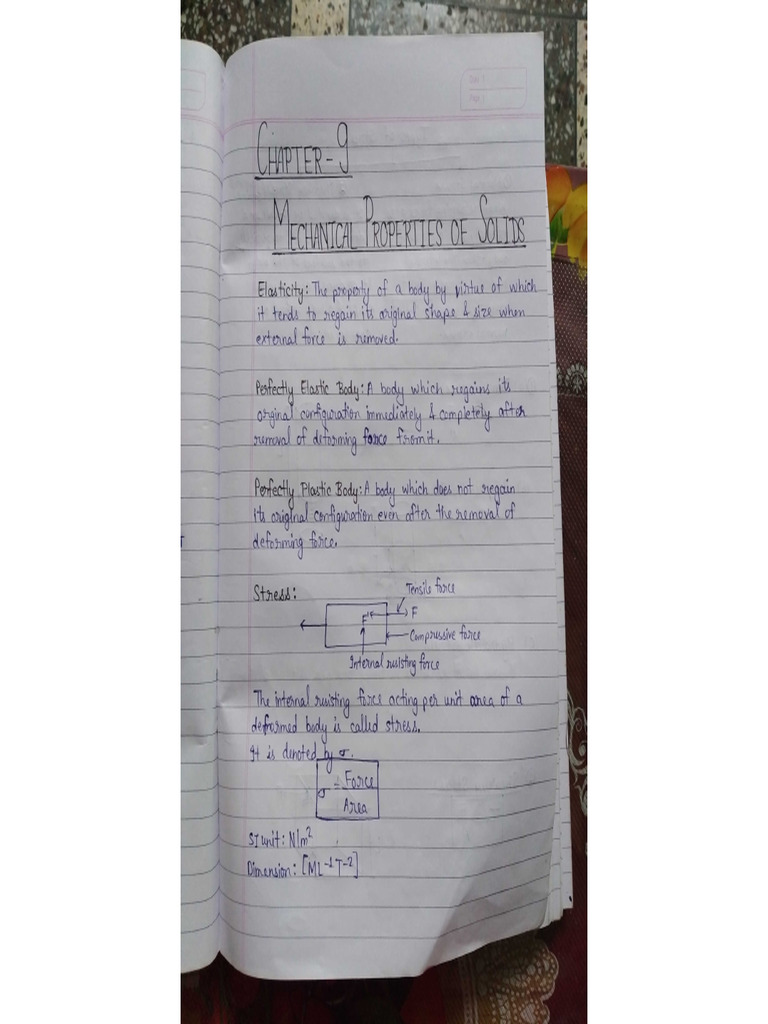 Date :
Page :
CHAPTER-9
MECHANICAL PROPERTIES OF SOLIDS
Elasticity: The property of a body by virtue of which
it tends to regain its original shape & size when
external force is removed.
Perfectly Elastic Body: A body which regains its
orginal configuration immediately & completely after
removal of deforming force from it.
Perfectly Plastic Body: A body which does not regain
its original configuration even after the removal of
deforming force.
Stress:
Tensile force
F' F
Compressive force
Internal resisting force
The internal resisting force acting per unit area of a
deformed body is called stress.
It is denoted by σ.
σ = Force
Area
SI unit: N/m²
Dimension: [ML⁻¹T⁻²]